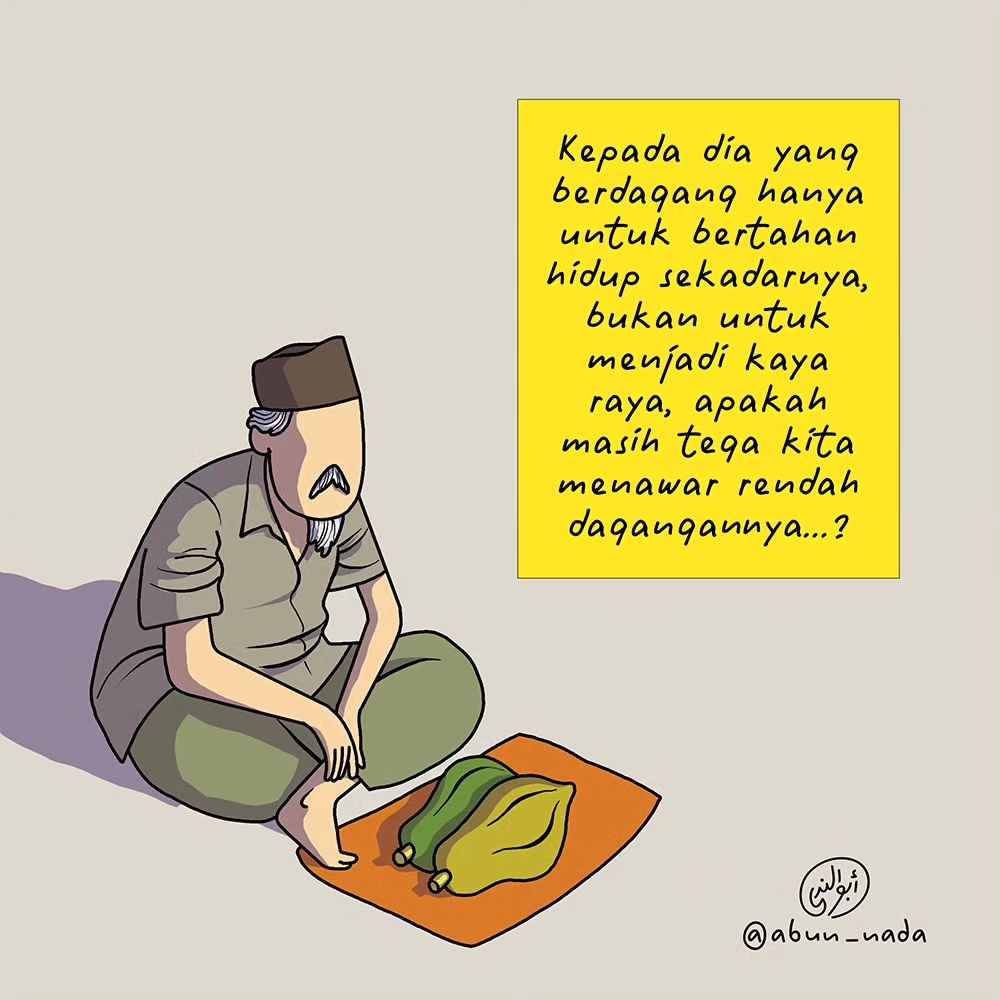 Kepada dia yang
berdagang hanya
untuk bertahan
hidup sekadarnya,
bukan untuk
menjadi kaya
raya, apakah
masih tega kita
menawar rendah
dagangannya...?
أبو الندى
@abun_nada